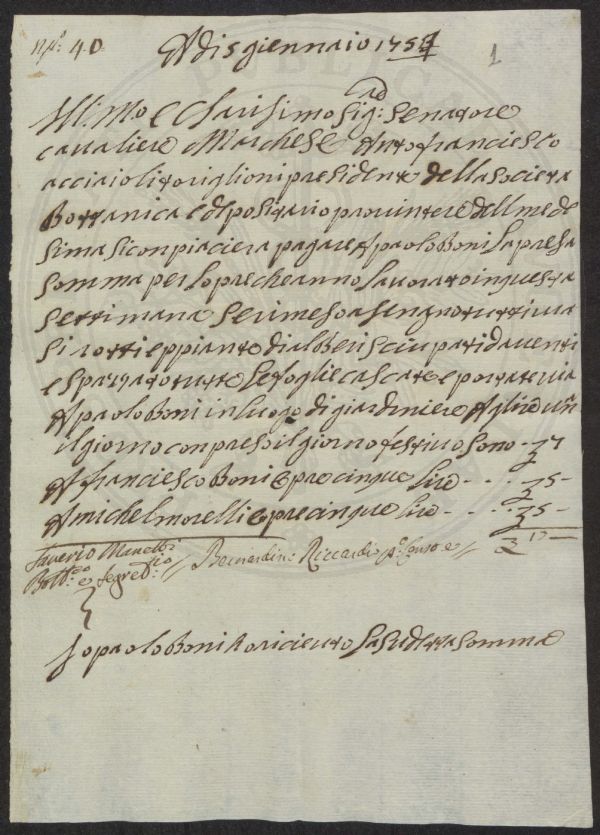 N.º 40
Adi 5 giennaio 1754
1
Ill.mo e Clarisimo Sig.r Senatore
Cavaliere Marchese Anto franciesco
acciaioli toriglioni presidente della Societa
Bottanica e depositario provintere dell mede
sima si conpiaciera pagare A paolo Boni la presa
somma per lopre che anno lavorato in questa
settimana se rimeso a sengno tutti i va
si rotti e ppiante di alberi sciupati da venti
e spazzato tutte le foglie cascate e portate via
A paolo Boni in luogo di giardiniere A lire una
il giorno conpreso il giorno festivo sono - 7
A franciesco Boni opre cinque lire - - - . 5 -
A michel morelli opre cinque lire - - - . 5 -
17 -
Saverio Manetti
Bott.co e Segret.rio // Bernardino Riccardi P.º Censore //
Io paolo Boni o ricieuto la sudetta somma
PUBLICA